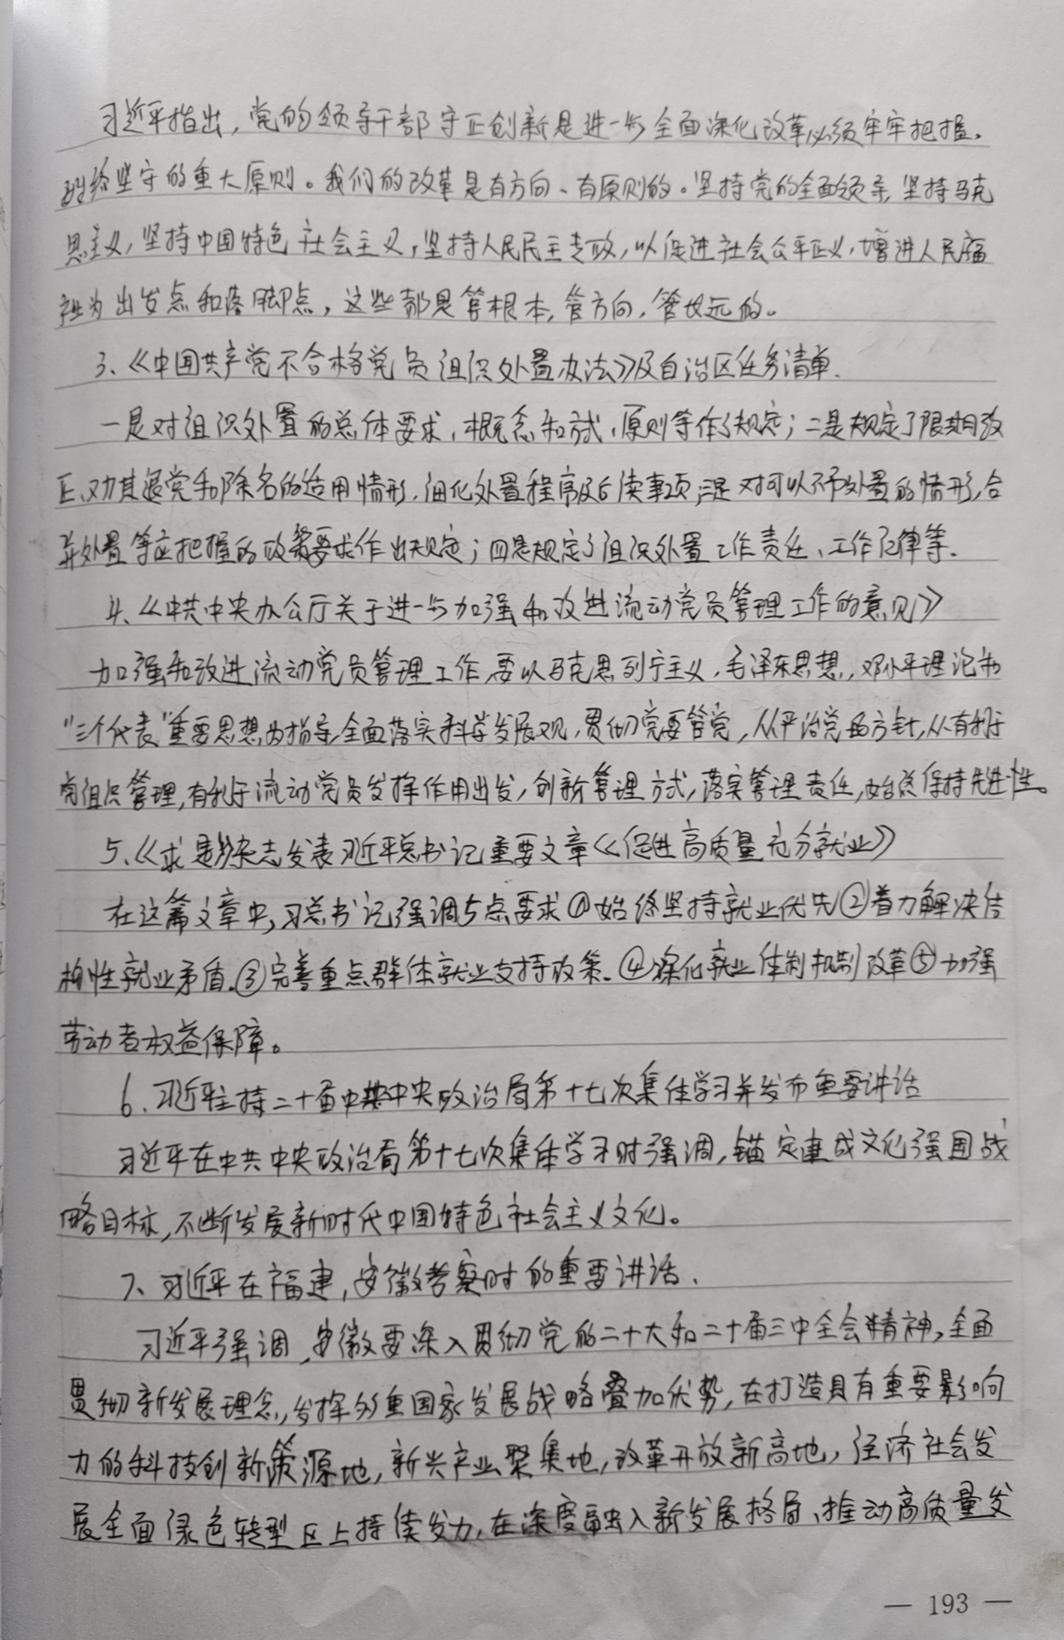 习近平指出，党的领导干部守正创新是进一步全面深化改革必须牢牢把握、
始终坚守的重大原则。我们的改革是有方向、有原则的。坚持党的全面领导，坚持马克
思主义，坚持中国特色社会主义，坚持人民民主专政，以促进社会公平正义，增进人民福
祉为出发点和落脚点，这些都是管根本，管方向，管长远的。
3、《中国共产党不合格党员组织处置办法》及自治区任务清单.
一是对组织处置的总体要求，概念和方式，原则等作了规定；二是规定了限期改
正、劝其退党和除名的适用情形，细化处置程序及后续事项；三是对可以不予处置的情形，合
并处置等应把握的政策要求作出规定；四是规定了组织处置工作责任、工作纪律等.
4、《中共中央办公厅关于进一步加强和改进流动党员管理工作的意见》
加强和改进流动党员管理工作，要以马克思列宁主义，毛泽东思想，邓小平理论和
"三个代表"重要思想为指导，全面落实科学发展观，贯彻党要管党，从严治党的方针，从有利于
党组织管理，有利于流动党员发挥作用出发，创新管理方式，落实管理责任，始终保持先进性。
5、《求是》杂志发表习近平总书记重要文章《促进高质量充分就业》
在这篇文章中，习总书记强调5点要求①始终坚持就业优先②着力解决结
构性就业矛盾.③完善重点群体就业支持政策.④深化就业体制机制改革⑤加强
劳动者权益保障。
6.习近平主持二十届中共中央政治局第十七次集体学习并发布重要讲话
习近平在中共中央政治局第十七次集体学习时强调，锚定建成文化强国战
略目标，不断发展新时代中国特色社会主义文化。
7、习近平在福建，安徽考察时的重要讲话.
习近平强调，安徽要深入贯彻党的二十大和二十届三中全会精神，全面
贯彻新发展理念，发挥多重国家发展战略叠加优势，在打造具有重要影响
力的科技创新策源地，新兴产业聚集地，改革开放新高地，经济社会发
展全面绿色转型区上持续发力，在深度融入新发展格局、推动高质量发
— 193 —